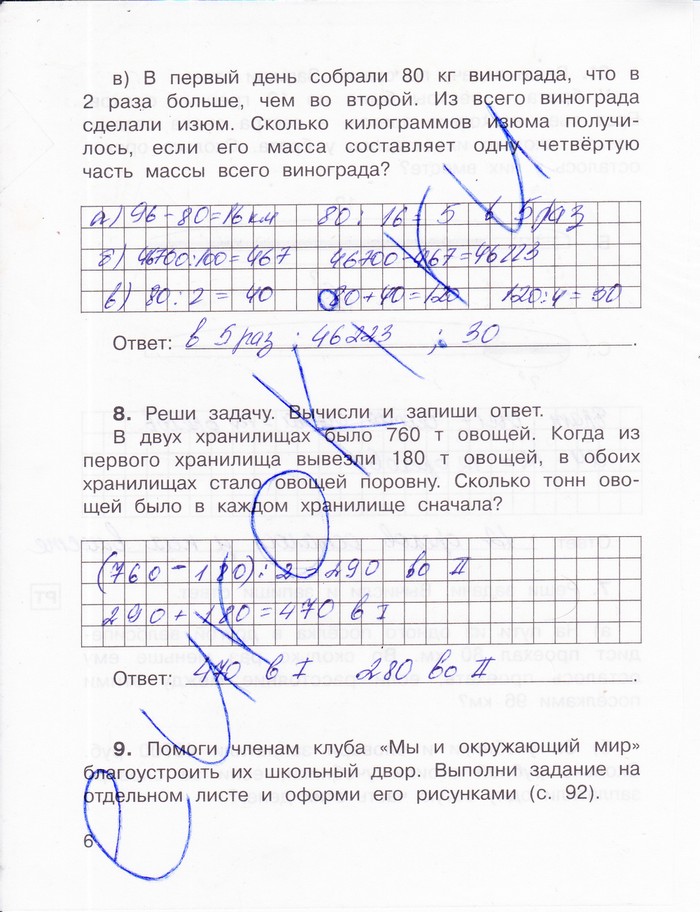 в) В первый день собрали 80 кг винограда, что в
2 раза больше, чем во второй. Из всего винограда
сделали изюм. Сколько килограммов изюма получи-
лось, если его масса составляет одну четвёртую
часть массы всего винограда?
а) 96-80=16 км 80 : 16 = 5 в 5 раз
б) 46700:100=467 46700-467=46223
в) 80 : 2 = 40 80+40=120 120:4=30
Ответ: в 5 раз ; 46223 ; 30 .
8. Реши задачу. Вычисли и запиши ответ.
В двух хранилищах было 760 т овощей. Когда из
первого хранилища вывезли 180 т овощей, в обоих
хранилищах стало овощей поровну. Сколько тонн ово-
щей было в каждом хранилище сначала?
(760-180):2=290 во II
290+180=470 в I
Ответ: 470 в I 280 во II .
9. Помоги членам клуба «Мы и окружающий мир»
благоустроить их школьный двор. Выполни задание на
отдельном листе и оформи его рисунками (с. 92).
6